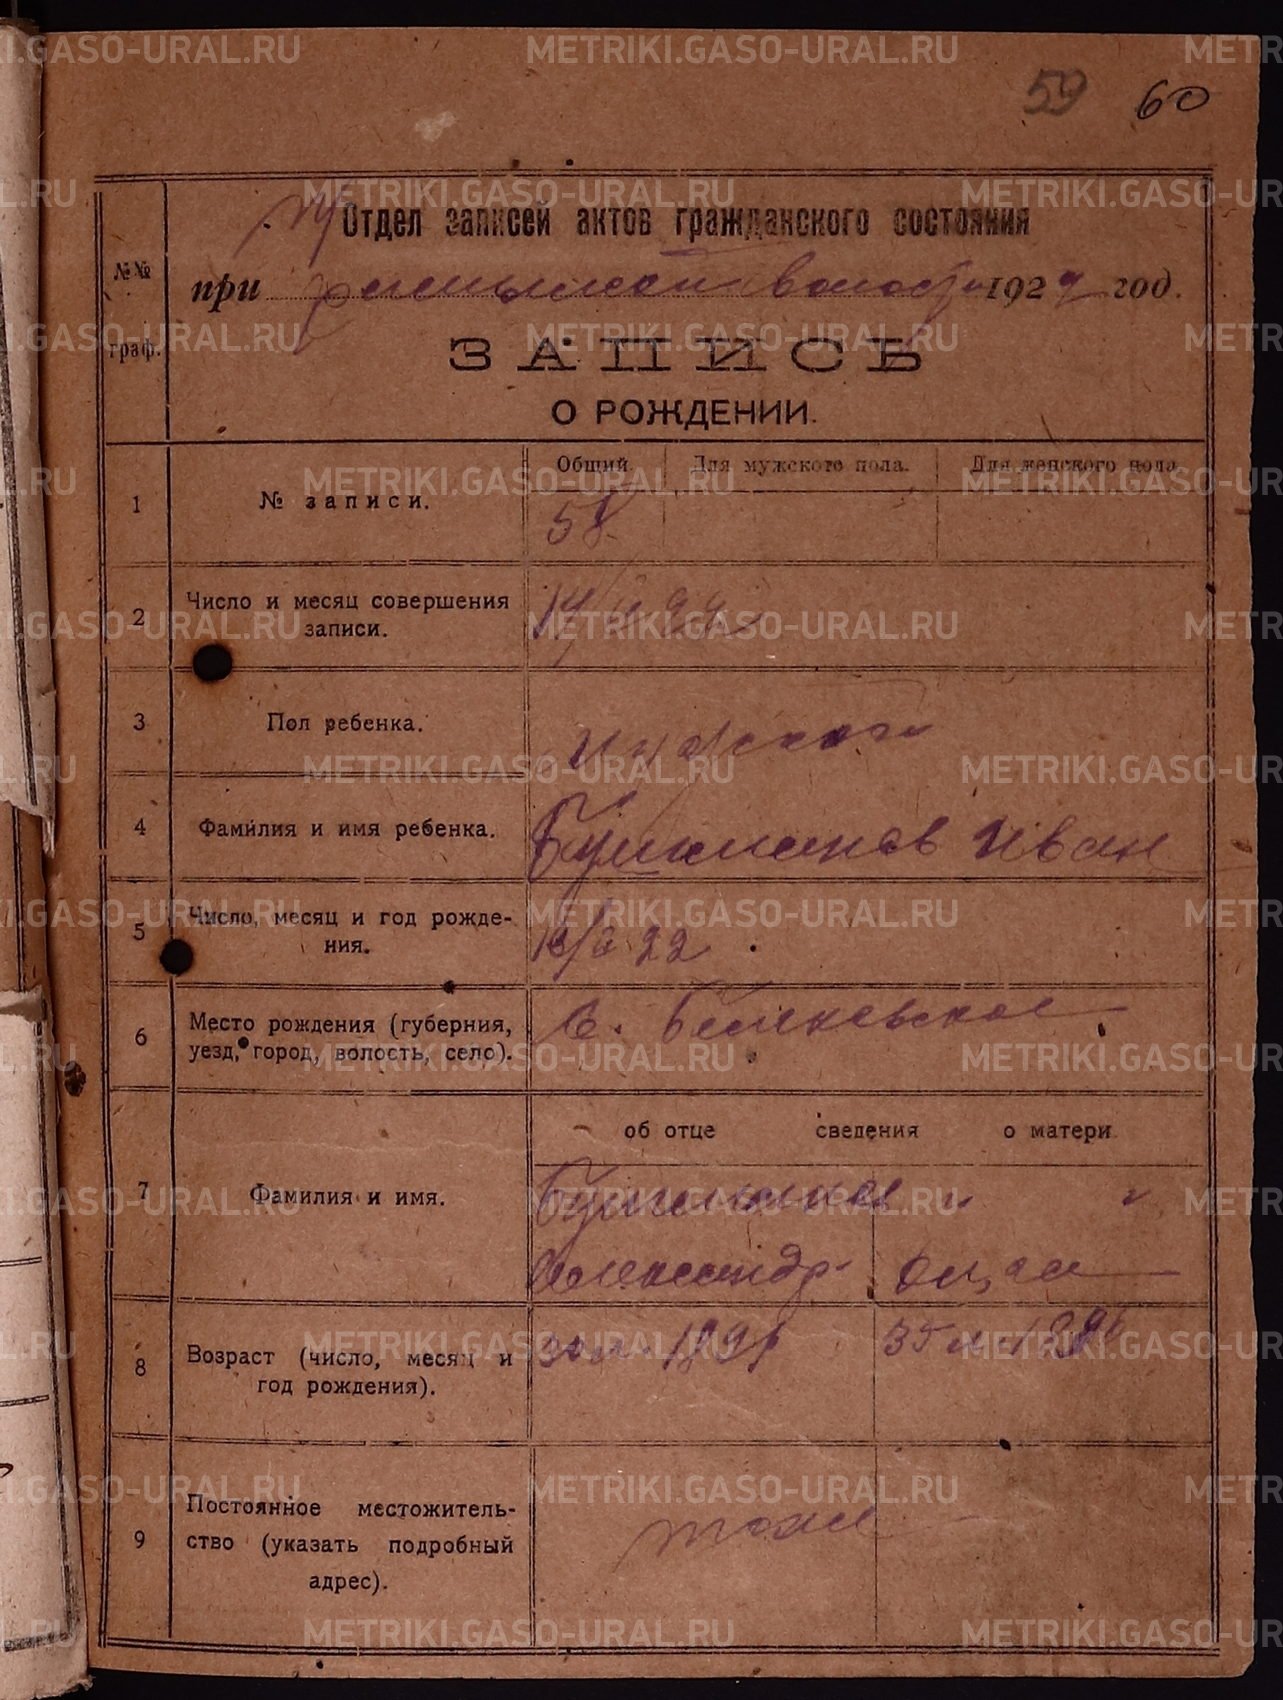 59 60
Отдел записей актов гражданского состояния
№№ граф.
при волости 1922 год.
ЗАПИСЬ
О РОЖДЕНИИ.
Общий. Для мужского пола. Для женского пола
1 № записи. 58
2 Число и месяц совершения
записи.
3 Пол ребенка. Мужской
4 Фамилия и имя ребенка. Иван
5 Число, месяц и год рожде-
ния. 22
6 Место рождения (губерния, С.
уезд, город, волость, село).
об отце сведения о матери
7 Фамилия и имя. " "
Александр
8 Возраст (число, месяц и 30 л. 35 л.
год рождения).
9 Постоянное местожитель-
ство (указать подробный тоже
адрес).
METRIKI.GASO-URAL.RU